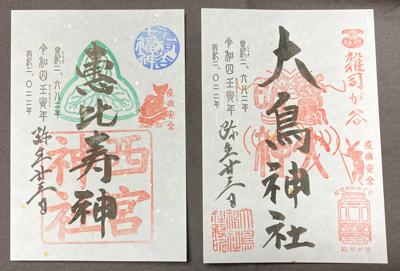 恵比寿神
西宮神社
疫病安全
皇紀二、六八二年
令和四壬寅年
西暦二、〇二二年
弥生廿三日
大鳥神社
雑司が谷
疫病安全
皇紀二、六八二年
令和四壬寅年
西暦二、〇二二年
弥生廿三日